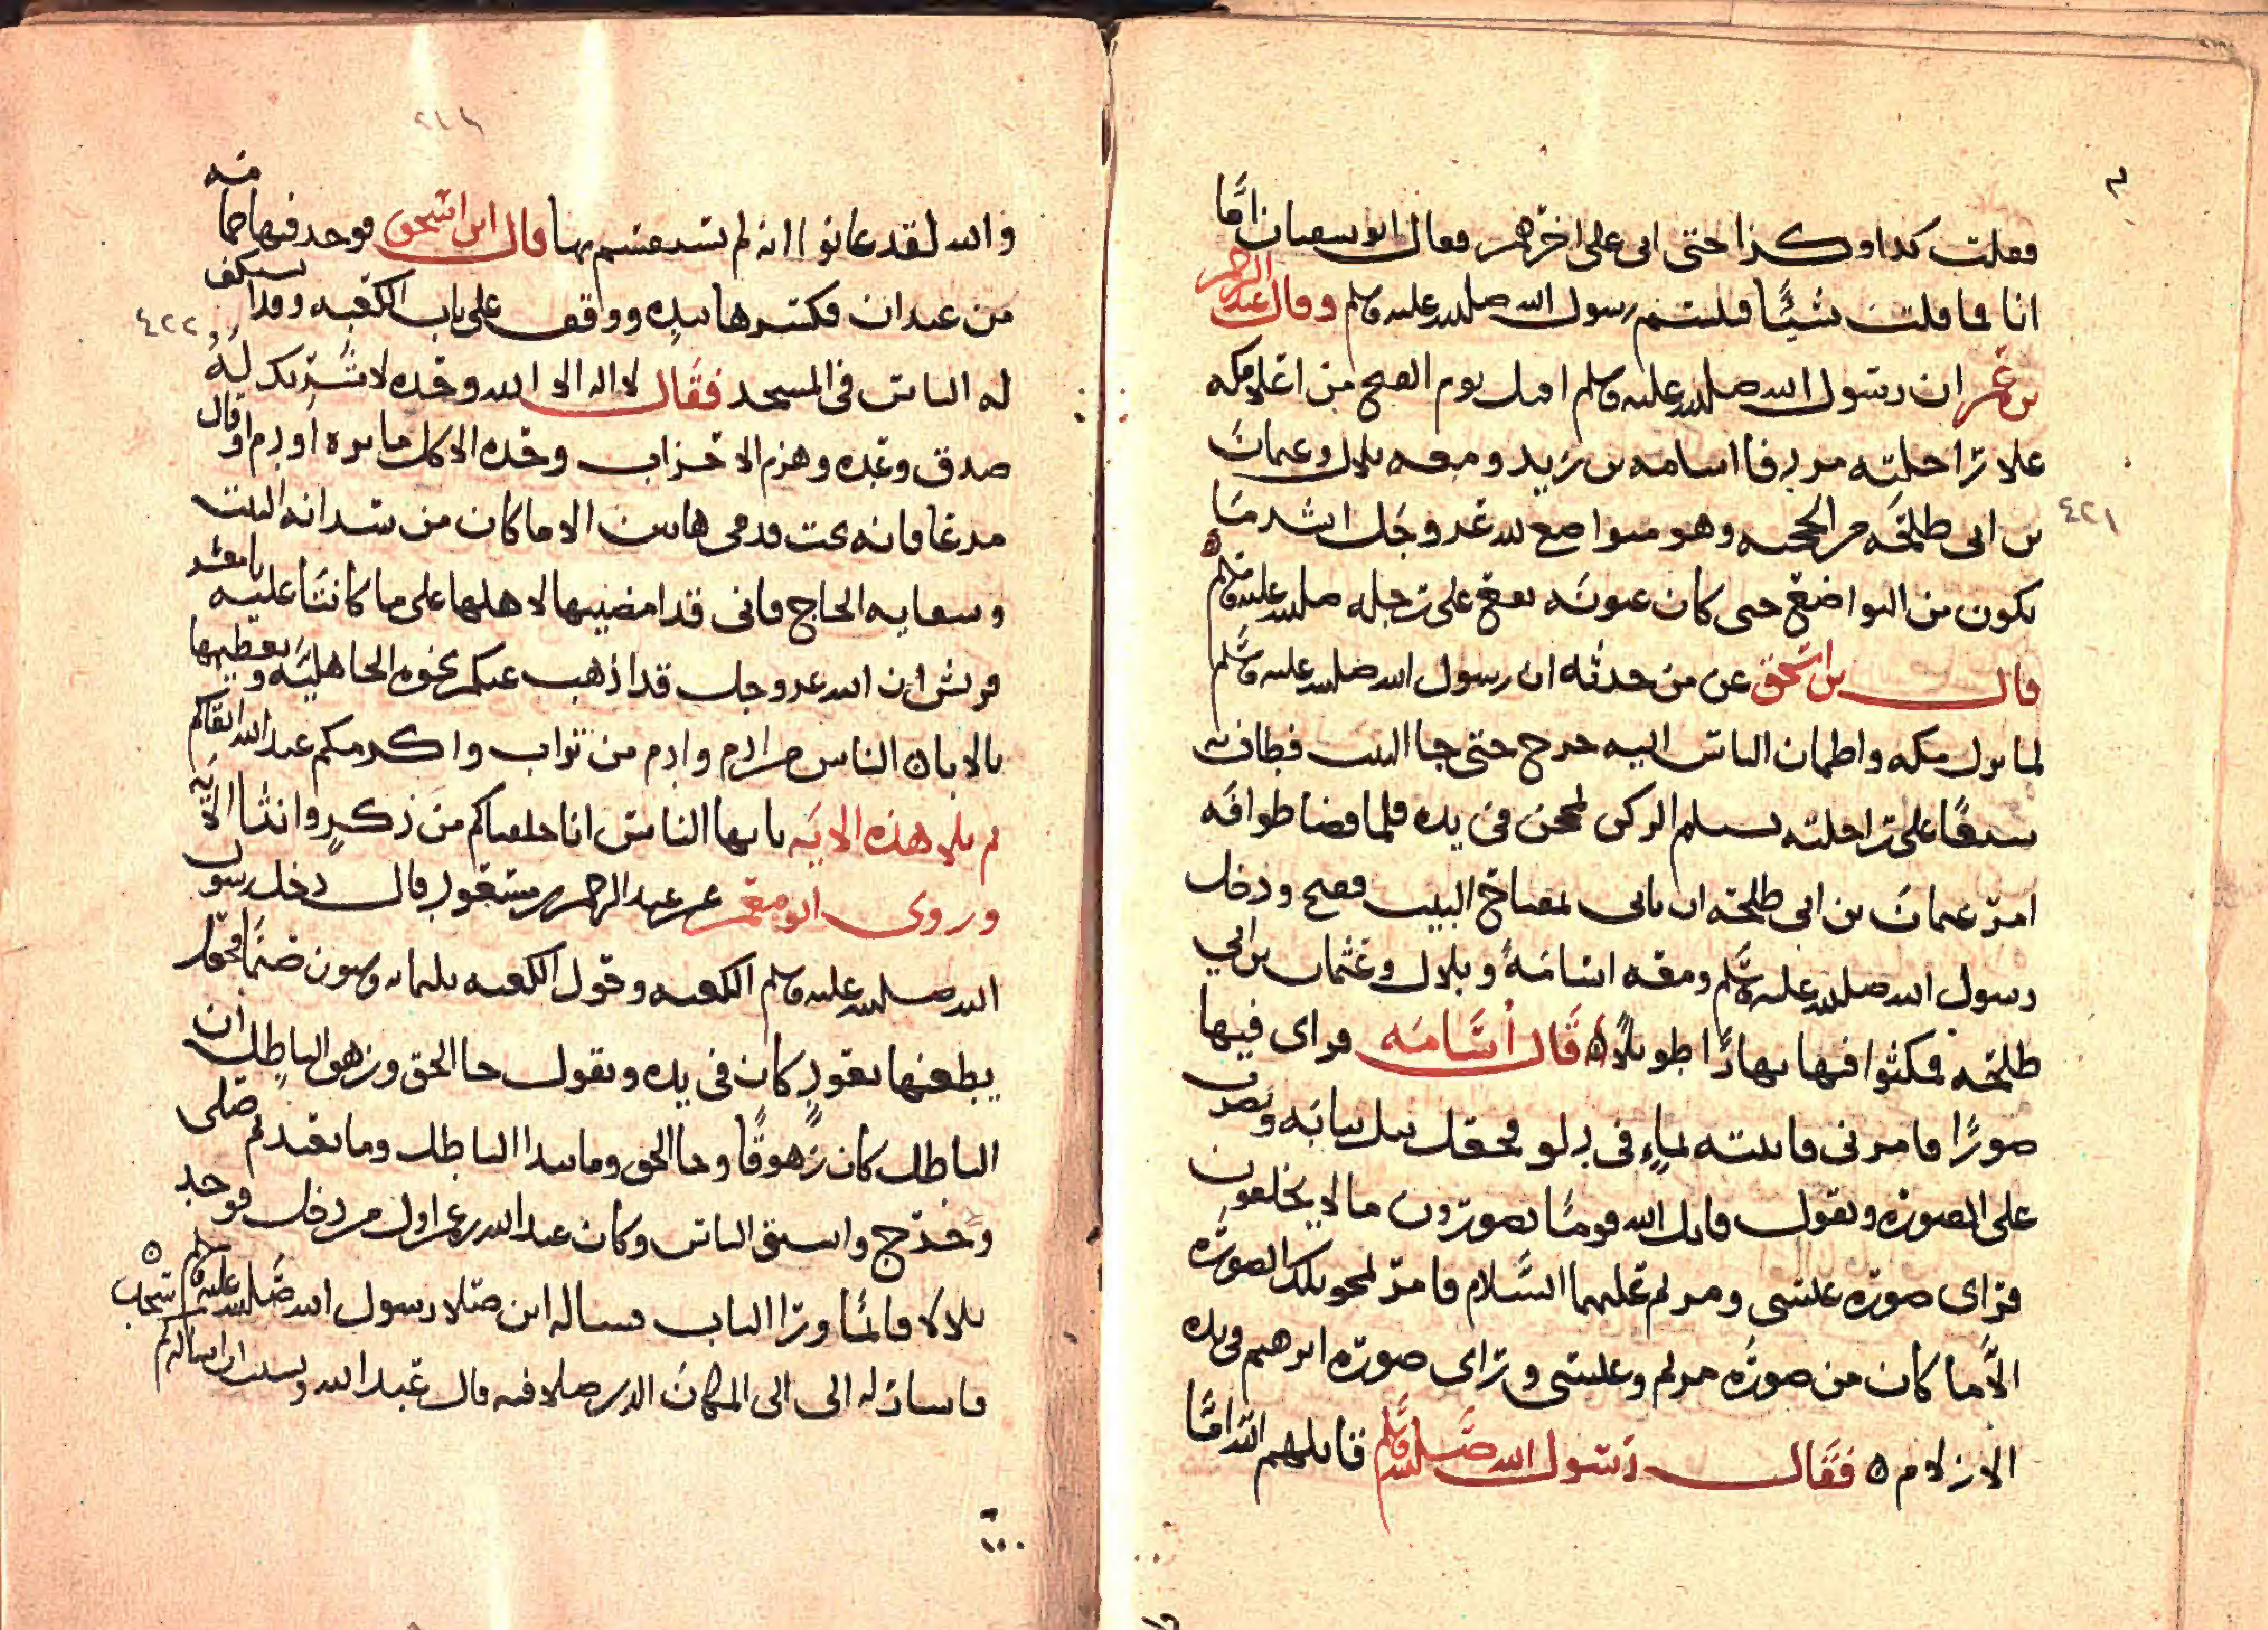 فقلت كذا وكذا حتى اتى على اخرهم فقال ابو سفيان اما
انا فما قلت شيئا فلستم رسول الله صلى الله عليه وسلم وقال عبد الرحمن
بن عمر ان رسول الله صلى الله عليه وسلم اقبل يوم الفتح من اعلا مكه
علا راحلته مردفا اسامه بن زيد ومعه بلال وعثمان
بن ابي طلحه من الحجبه وهو متواضع لله عز وجل اشد ما
يكون من التواضع حتى كان عثنونه يقع على رحله صلى الله عليه وسلم ٥
قال بن اسحق عن من حدثه ان رسول الله صلى الله عليه وسلم
لما نزل مكه واطمان الناس اليه خرج حتى جا البيت فطاف به
سبعا على راحلته يستلم الركن بمحجن في يده فلما قضا طوافه
امر عثمان بن ابي طلحه ان ياتي بمفتاح البيت ففتح ودخل
رسول الله صلى الله عليه وسلم ومعه اسامه وبلال وعثمان بن ابي
طلحه فمكثوا فيها نهارا طويلا ٥ قال اسامه فراى فيها
صورا فامرني فاتيته بماء في دلو فجعل يبل ثيابه ويضرب
على الصوره ويقول قاتل الله قوما يصورون ما لا يخلقون
فراى صوره عيسى ومريم عليهما السلام فامر بمحو تلك الصوره
الا ما كان من صوره مريم وعيسى وراى صوره ابرهيم في يده
الازلام ٥ فقال رسول الله صلى الله عليه وسلم قاتلهم الله اما
٤٢١
والله لقد علموا انه لم يستقسم بها قال ابن اسحق فوجد فيها حمامه
من عيدان فكسرها بيده ووقف على باب الكعبه وقد استكف
له الناس في المسجد فقال لا اله الا الله وحده لا شريك له
صدق وعده وهزم الاحزاب وحده الا كل ماثره او دم او مال
مدعا فانه تحت قدمي هاتين الا ما كان من سدانه البيت
وسقايه الحاج فاني قد امضيتها لاهلها على ما كانتا عليه يا معشر
قريش ان الله عز وجل قد اذهب عنكم نخوه الجاهليه وتعظيمها
بالابا ٥ الناس من ادم وادم من تراب واكرمكم عند الله اتقاكم
ثم تلا هذه الايه يا ايها الناس انا خلقناكم من ذكر وانثا الايه
وروى ابو معمر عن عبد الرحمن بن مسعود قال دخل رسول
الله صلى الله عليه وسلم الكعبه وحول الكعبه ثلثمايه وستون صنما فجعل
يطعنها بعود كان في يده ويقول جا الحق وزهق الباطل ان
الباطل كان زهوقا وجا الحق وما يبدا الباطل وما يعيد ثم صلى
وخرج واستبق الناس وكان عبد الله بن عمر اول من دخل فوجد
بلالا قائما ورا الباب فساله اين صلا رسول الله صلى الله عليه وسلم ٥
فاشار له الى المكان الذي صلا فيه قال عبد الله ونسيت ان اساله كم
٤٢٢